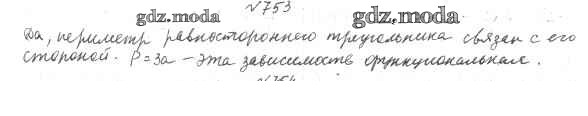 №753
gdz.moda gdz.moda
Да, периметр равностороннего треугольника связан с его
стороной. P=3a – эта зависимость функциональная.
№754